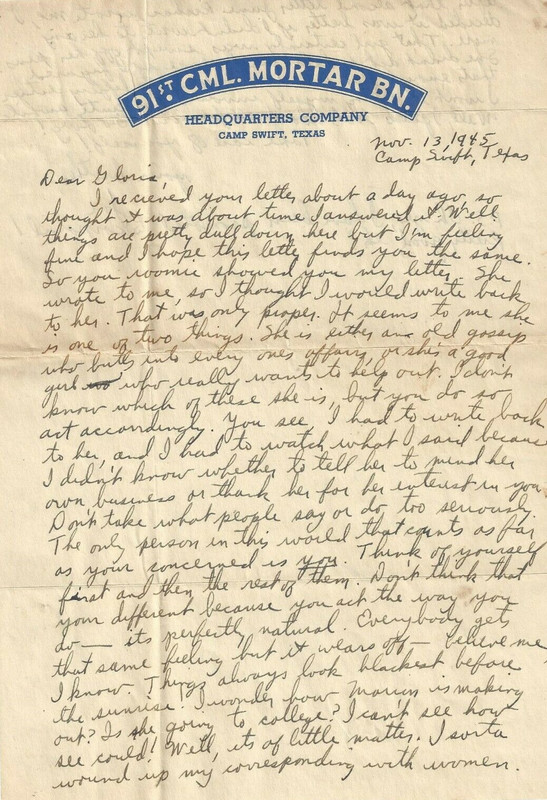 91ST. CML. MORTAR BN.
HEADQUARTERS COMPANY
CAMP SWIFT, TEXAS
Nov. 13, 1945
Camp Swift, Texas
Dear Gloria,
I recieved your letter about a day ago, so
thought it was about time I answered it. Well
things are pretty dull down here but I'm feeling
fine and I hope this letter finds you the same.
So you roomie showed you my letter. She
wrote to me, so I thought I would write back
to her. That was only proper. It seems to me she
is one of two things. She is either an old gossip
who butts into every ones affairs, or she's a good
girl who really wants to help out. I don't
know which of these she is, but you do so
act accordingly. You see, I had to write back
to her, and I had to watch what I said because
I didn't know whether to tell her to mind her
own business or thank her for her interest in you.
Don't take what people say or do, too seriously.
The only person in this world that counts as far
as your concerned is you. Think of yourself
first and then the rest of them. Don't think that
your different because you act the way you
do — its perfectly natural. Everybody gets
that same feeling but it wears off — believe me
I know. Things always look blackest before
the sunrise. I wonder how Marion is making
out? Is she going to college? I can't see how
see could! Well, its of little matter. I sorta
wound up my corresponding with women.